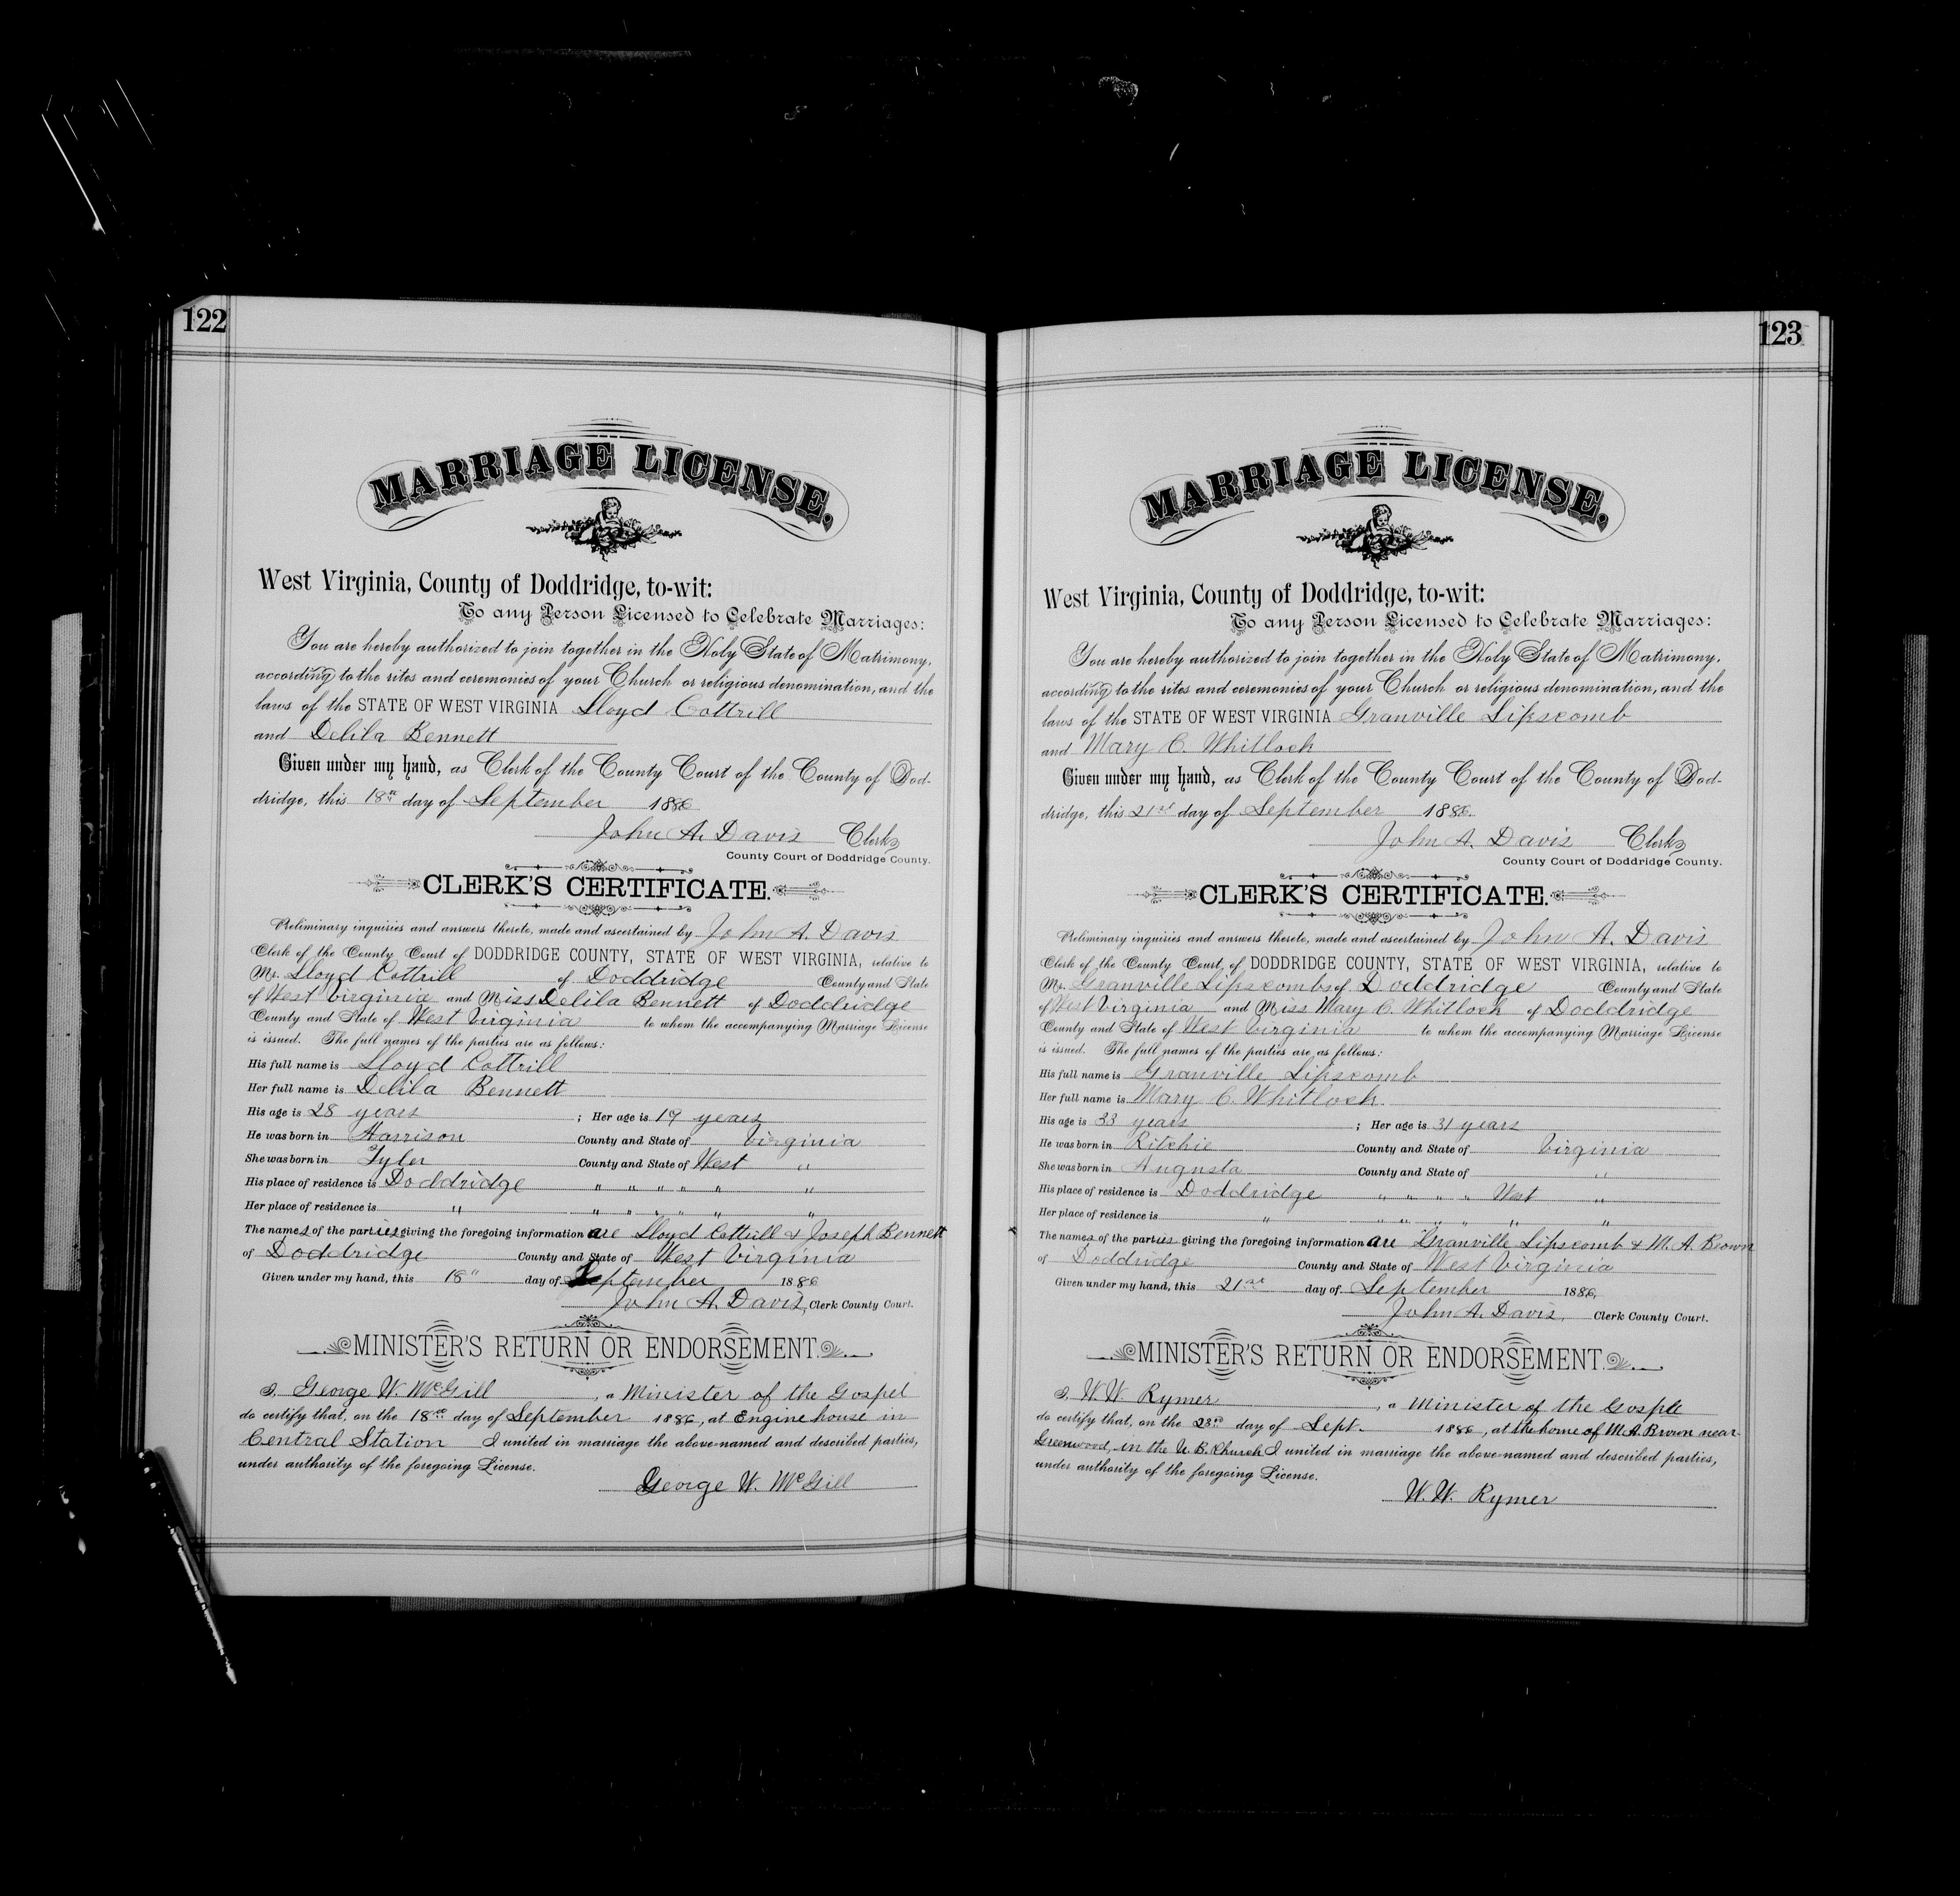 122
MARRIAGE LICENSE.
West Virginia, County of Doddridge, to-wit:
To any Person Licensed to Celebrate Marriages:
You are hereby authorized to join together in the Holy State of Matrimony,
according to the rites and ceremonies of your Church or religious denomination, and the
laws of the STATE OF WEST VIRGINIA Lloyd Cottrill
and Delila Bennett
Given under my hand, as Clerk of the County Court of the County of Dod-
dridge, this 18th day of September 1886
John A. Davis Clerk
County Court of Doddridge County.
CLERK'S CERTIFICATE.
Preliminary inquiries and answers thereto, made and ascertained by John A. Davis
Clerk of the County Court of DODDRIDGE COUNTY, STATE OF WEST VIRGINIA, relative to
Mr. Lloyd Cottrill of Doddridge County and State
of West Virginia and Miss Delila Bennett of Doddridge
County and State of West Virginia to whom the accompanying Marriage License
is issued. The full names of the parties are as follows:
His full name is Lloyd Cottrill
Her full name is Delila Bennett
His age is 28 years ; Her age is 19 years
He was born in Harrison County and State of Virginia
She was born in Tyler County and State of West "
His place of residence is Doddridge " " " " " "
Her place of residence is " " " " " " "
The names of the parties giving the foregoing information are Lloyd Cottrill & Joseph Bennett
of Doddridge County and State of West Virginia
Given under my hand, this 18" day of September 1886
John A. Davis, Clerk County Court.
MINISTER'S RETURN OR ENDORSEMENT.
I, George W. McGill, a Minister of the Gospel
do certify that, on the 18th day of September 1886, at Engine house in
Central Station I united in marriage the above-named and described parties,
under authority of the foregoing License.
George W. McGill
123
MARRIAGE LICENSE.
West Virginia, County of Doddridge, to-wit:
To any Person Licensed to Celebrate Marriages:
You are hereby authorized to join together in the Holy State of Matrimony,
according to the rites and ceremonies of your Church or religious denomination, and the
laws of the STATE OF WEST VIRGINIA Granville Lipscomb
and Mary C. Whitlock
Given under my hand, as Clerk of the County Court of the County of Dod-
dridge, this 21st day of September 1886.
John A. Davis Clerk
County Court of Doddridge County.
CLERK'S CERTIFICATE.
Preliminary inquiries and answers thereto, made and ascertained by John A. Davis
Clerk of the County Court of DODDRIDGE COUNTY, STATE OF WEST VIRGINIA, relative to
Mr. Granville Lipscomb of Doddridge County and State
of West Virginia and Miss Mary C. Whitlock of Doddridge
County and State of West Virginia to whom the accompanying Marriage License
is issued. The full names of the parties are as follows:
His full name is Granville Lipscomb
Her full name is Mary C. Whitlock
His age is 33 years ; Her age is 31 years
He was born in Ritchie County and State of Virginia
She was born in Augusta County and State of "
His place of residence is Doddridge " " " " West "
Her place of residence is " " " " " " "
The names of the parties giving the foregoing information are Granville Lipscomb & M. A. Brown
of Doddridge County and State of West Virginia
Given under my hand, this 21st day of September 1886,
John A. Davis, Clerk County Court.
MINISTER'S RETURN OR ENDORSEMENT.
I, W. W. Rymer, a Minister of the Gosple
do certify that, on the 23rd day of Sept. 1886, at the home of M. A. Brown near
Greenwood, in the U. B. Church I united in marriage the above-named and described parties,
under authority of the foregoing License.
W. W. Rymer